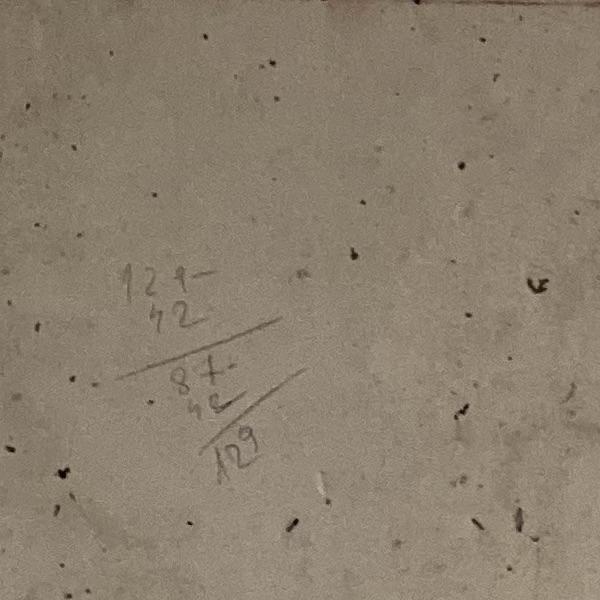 129-
42
87-
42
129